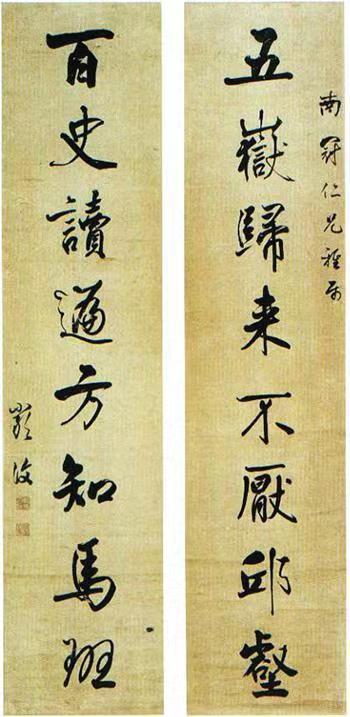 南冠仁兄雅属
五嶽歸来不厭邱壑
百史讀遍方知馬班